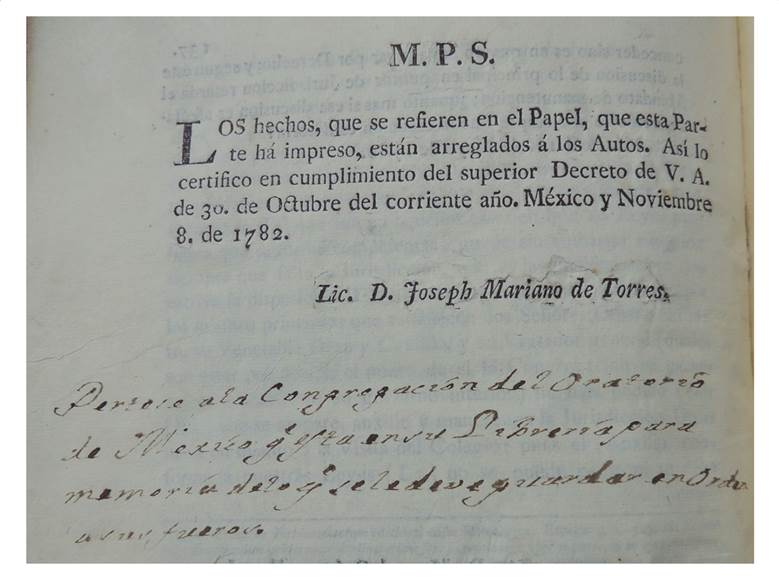 M. P. S.
LOS hechos, que se refieren en el Papel, que esta Par-
te há impreso, están arreglados á los Autos. Así lo
certifico en cumplimiento del superior Decreto de V. A.
de 30. de Octubre del corriente año. México y Noviembre
8. de 1782.
Lic. D. Joseph Mariano de Torres.
Pertece ala Congregación del Oratorio
de Mexico q̃ esta en su Libreria para
memoria delo q̃ sele deve guardar en Orden
a sus fueros.